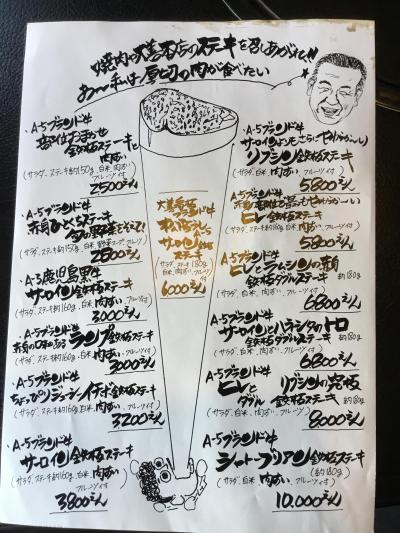 焼肉の大善本店のステーキを召しあがれ!!
あ〜私は厚切の肉が食べたい
・A-5ブランド牛
鉄板ステーキと
肉すい
(サラダ、ステーキ約150g、白米、肉すい、
フルーツ付)
2500えん
・A-5ブランド牛
赤身ひとくちステーキ
旬の野菜をそえて!
(サラダ、ステーキ約150g、白米、野菜スープ、フルーツ)
2800えん
・A-5鹿児島黒牛
サーロイン鉄板ステーキ
(サラダ、ステーキ約160g、白米、肉すい、フルーツ付)
3000えん
・A-5ブランド牛
赤身の味わいある ランプ鉄板ステーキ
(サラダ、ステーキ約160g、白米、肉すい、フルーツ付)
3000えん
・A-5ブランド牛
ちょっぴりジューシーイチボ鉄板ステーキ
(サラダ、ステーキ約160g、白米、肉すい、フルーツ)
3200えん
・A-5ブランド牛
サーロイン鉄板ステーキ
(サラダ、ステーキ約160g、白米、肉すい、
フルーツ付)
3800えん
ブランド牛
サーロイン鉄板
ステーキ
(サラダ、ステーキ180g
白米、肉すい、フルーツ
付)
6000えん
・A-5ブランド牛
サーロインよりもさらにやわらかーい
リブシン鉄板ステーキ
(サラダ、白米、肉すい、フルーツ付)
5800えん
・A-5ブランド牛
赤身部位で一番やわらかーい
ヒレ鉄板ステーキ
(サラダ、ステーキ約160g、白米、肉すい、フルーツ付)
5800えん
・A-5ブランド牛
ヒレとラムシンの赤身
鉄板ダブルステーキ 約180g
(サラダ、白米、肉すい、フルーツ付)
6800えん
・A-5ブランド牛
サーロインとハネシタのトロ
鉄板ダブルステーキ 約180g
(サラダ、白米、肉すい、フルーツ付)
6800えん
・A-5ブランド牛
ヒレとリブシンの究極
ダブル鉄板ステーキ 約180g
(サラダ、白米、肉すい、フルーツ)
8000えん
・A-5ブランド牛
シャートーブリアン鉄板ステーキ
(約180g)
(サラダ、白米、肉すい、フルーツ付)
10.000えん